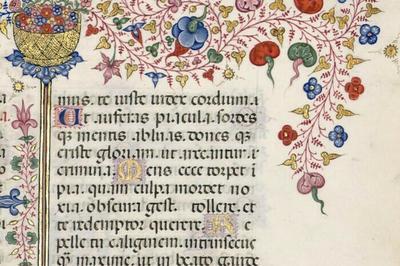 mus. te iuste iudex cordium.
Ut auferas piacula. sordes
q̃ mentis abluas. dones q̃
criste gloriam. ut arceantur
crimina. Mens ecce torpet i
pia. quam culpa mordet no
xia. obscura gest. tollere. et
te redemptor querere. R
epelle tu caliginem. intrinsecus
q̃ maxime. ut in beato gaude